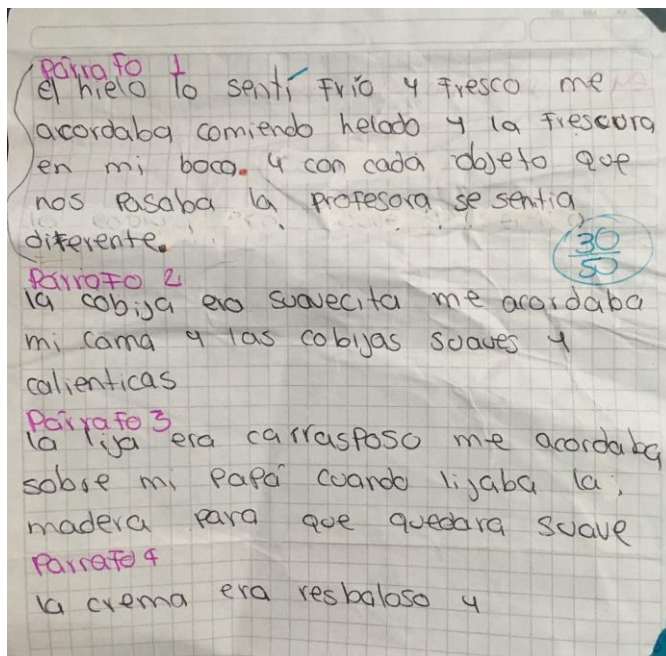 Párrafo 1
el hielo lo sentí frío y fresco me
acordaba comiendo helado y la frescura
en mi boca. y con cada objeto que
nos pasaba la profesora se sentia
diferente.
30
50
Párrafo 2
la cobija era suavecita me acordaba
mi cama y las cobijas suaves y
calienticas
Párrafo 3
la lija era carrasposo me acordaba
sobre mi papá cuando lijaba la,
madera para que quedara suave
Parrafo 4
la crema era resbaloso y